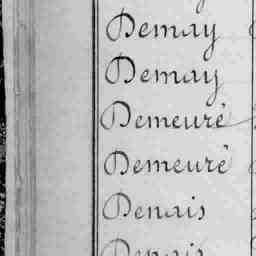 Demay
Demay
Demeuré
Demeuré
Denais
Denais